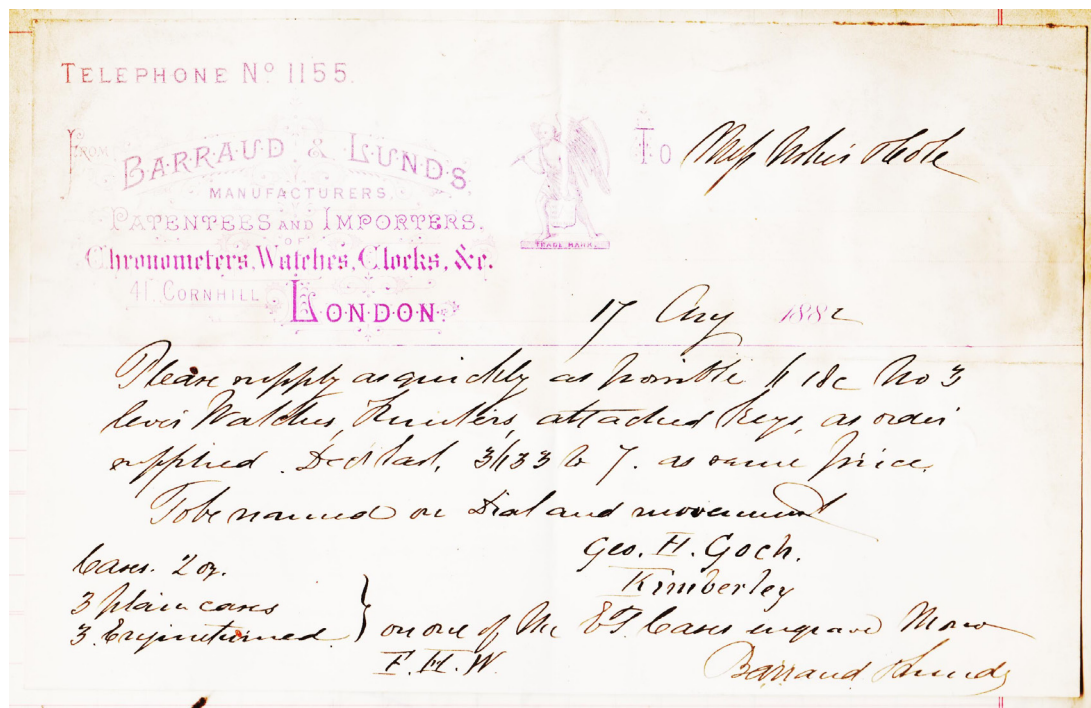 TELEPHONE No 1155.
FROM
BARRAUD & LUNDS
MANUFACTURERS,
PATENTEES AND IMPORTERS.
OF
Chronometers, Watches, Clocks, &c.
41, CORNHILL
LONDON.
TRADE MARK
TO Mess
17 Aug 1882
Please supply as quickly as possible 18c No 3
lever Watches, Hunters, attached keys, as order
supplied. Decr last, to 7. as same price.
To be named on Dial and movement
Geo. H. Goch.
Kimberley
Cases. 2 oz.
3 plain cases
3. Engineturned
on one of the ET. Cases engrave Mono
F. H. W.
Barraud & Lunds